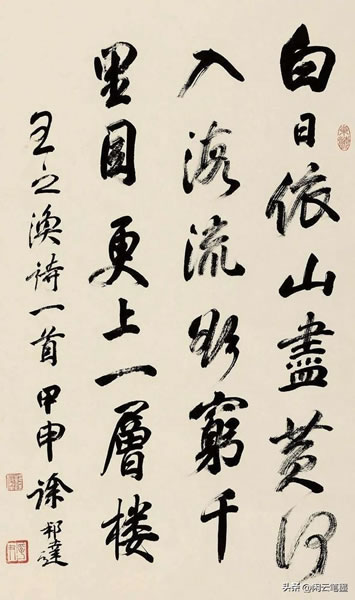 白日依山盡黄河
入海流欲窮千
里目更上一層楼
王之渙詩一首 甲申 徐邦達
头条@闲云笔墨